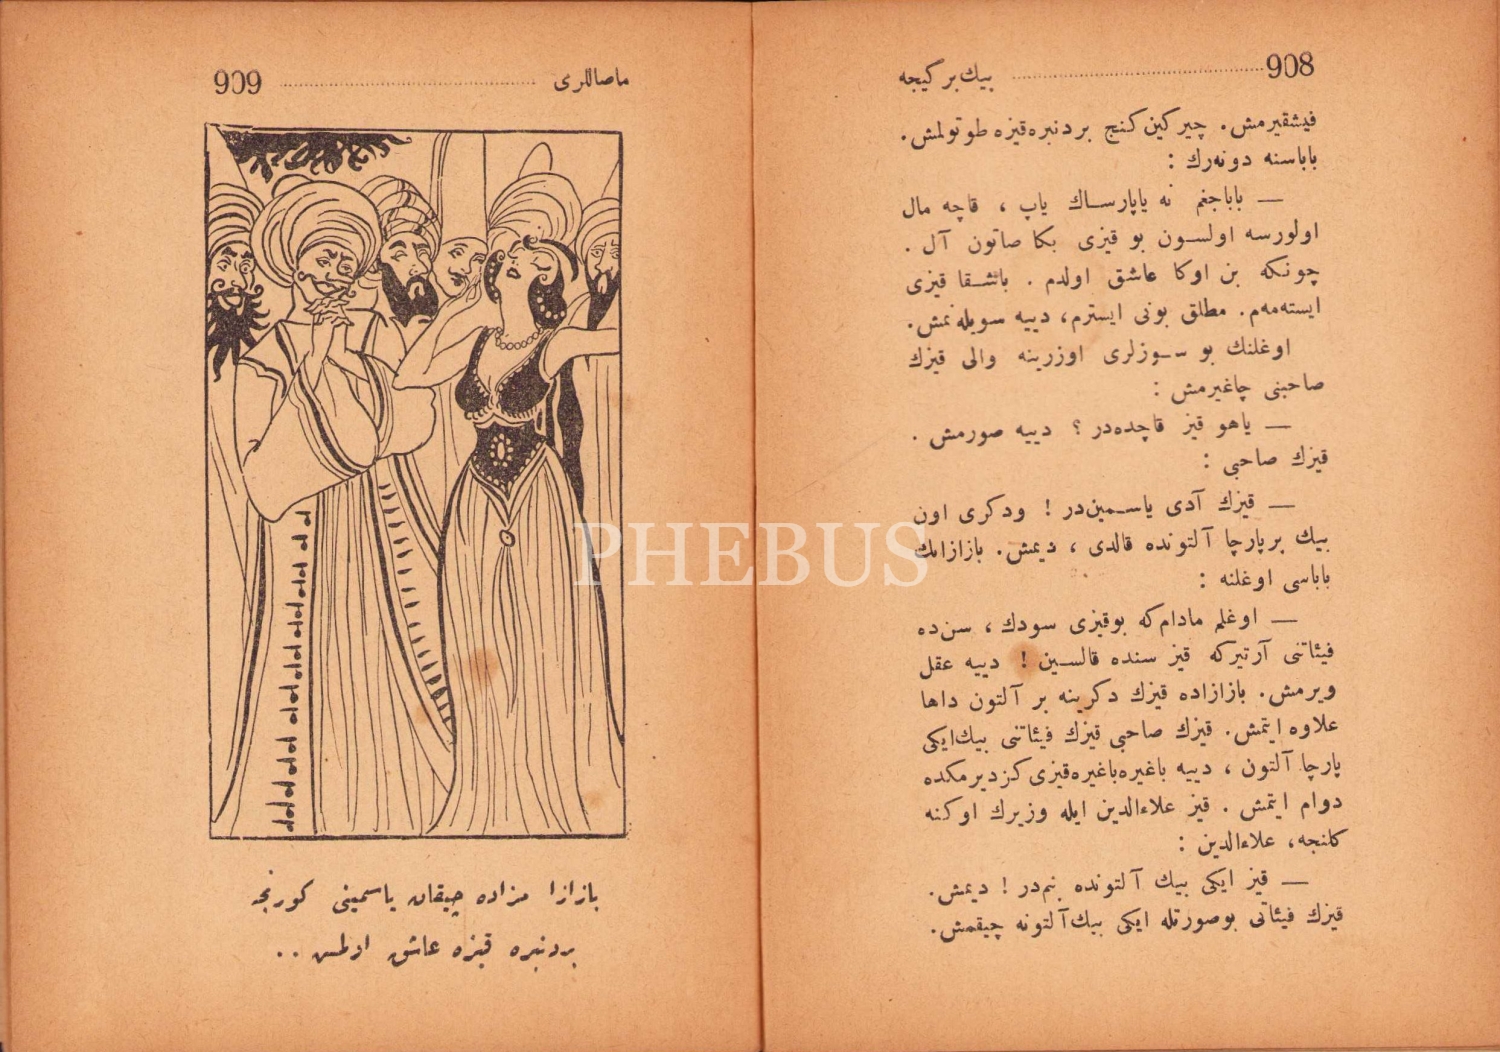 908 بیك بر گیجه
فیشقیرمش. چیركین كنج بردنبره قیزه طوتولمش.
باباسنه دونه‌رك :
— باباجغم نه یاپارسـاك یاپ ، قاچه مال
اولورسه اولسون بو قیزی بكا صاتون آل .
چونكه بن اوكا عاشق اولدم . باشـقا قیزی
ایسته‌مه‌م. مطلق بونی ایسترم، دییه سویله‌نمش.
اوغلنك بو سـوزلری اوزرینه والی قیزك
صاحبنی چاغیرمش :
— یاهو قیز قاچده‌در ؟ دییه صورمش .
قیزك صاحبی :
— قیزك آدی یاسـمین‌در ! ودكری اون
بیك بر پارچا آلتونده قالدی ، دیمش. بازازانك
باباسی اوغلنه :
— اوغلم مادام‌كه بوقیزی سودك ، سن‌ده
فیئاتنی آرتیركه قیز سنده قالسـین ! دییه عقل
ویرمش. بازازاده قیزك دكرینه بر آلتون داها
علاوه ایتمش. قیزك صاحبی قیزك فیئاتنی بیك‌ایكی
پارچا آلتون ، دییه باغیره‌باغیره‌قیزی كزدیرمكده
دوام ایتمش . قیز علاءالدین ایله وزیرك اوكنه
كلنجه، علاءالدین :
— قیز ایكی بیك آلتونده بنم‌در ! دیمش.
قیزك فیئاتی بوصورتله ایكی بیك‌آلتونه چیقمش.
ماصاللری 909
بازازا مزاده چیقان یاسمینی كورنجه
بردنبره قیزه عاشق اولمش . .
PHEBUS